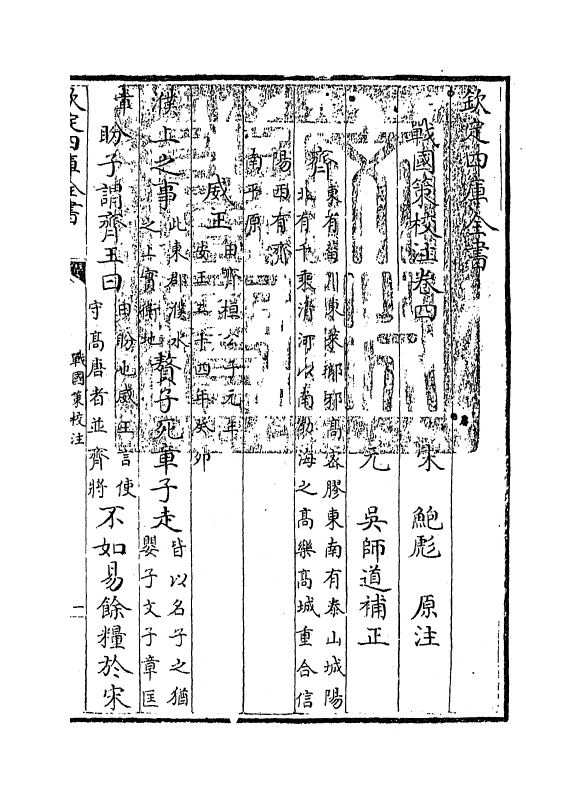 欽定四庫全書
戰國策校注卷四
宋 鮑彪 原注
元 吳師道補正
齊
東有菑川東萊瑯邪髙密膠東南有泰山城陽
北有千乗清河以南勃海之髙樂髙城重合信
陽西有濟
南平原
威王
田齊桓公子元年
安王二十四年癸卯
濮上之事
此東郡濮水
之上實衛地
贅子死章子走
皆以名子之猶
嬰子文子章匡
章
盼子謂齊王曰
田盼也威王言使
守髙唐者並齊將
不如易餘糧於宋
欽定四庫全書
戰國策校注
一